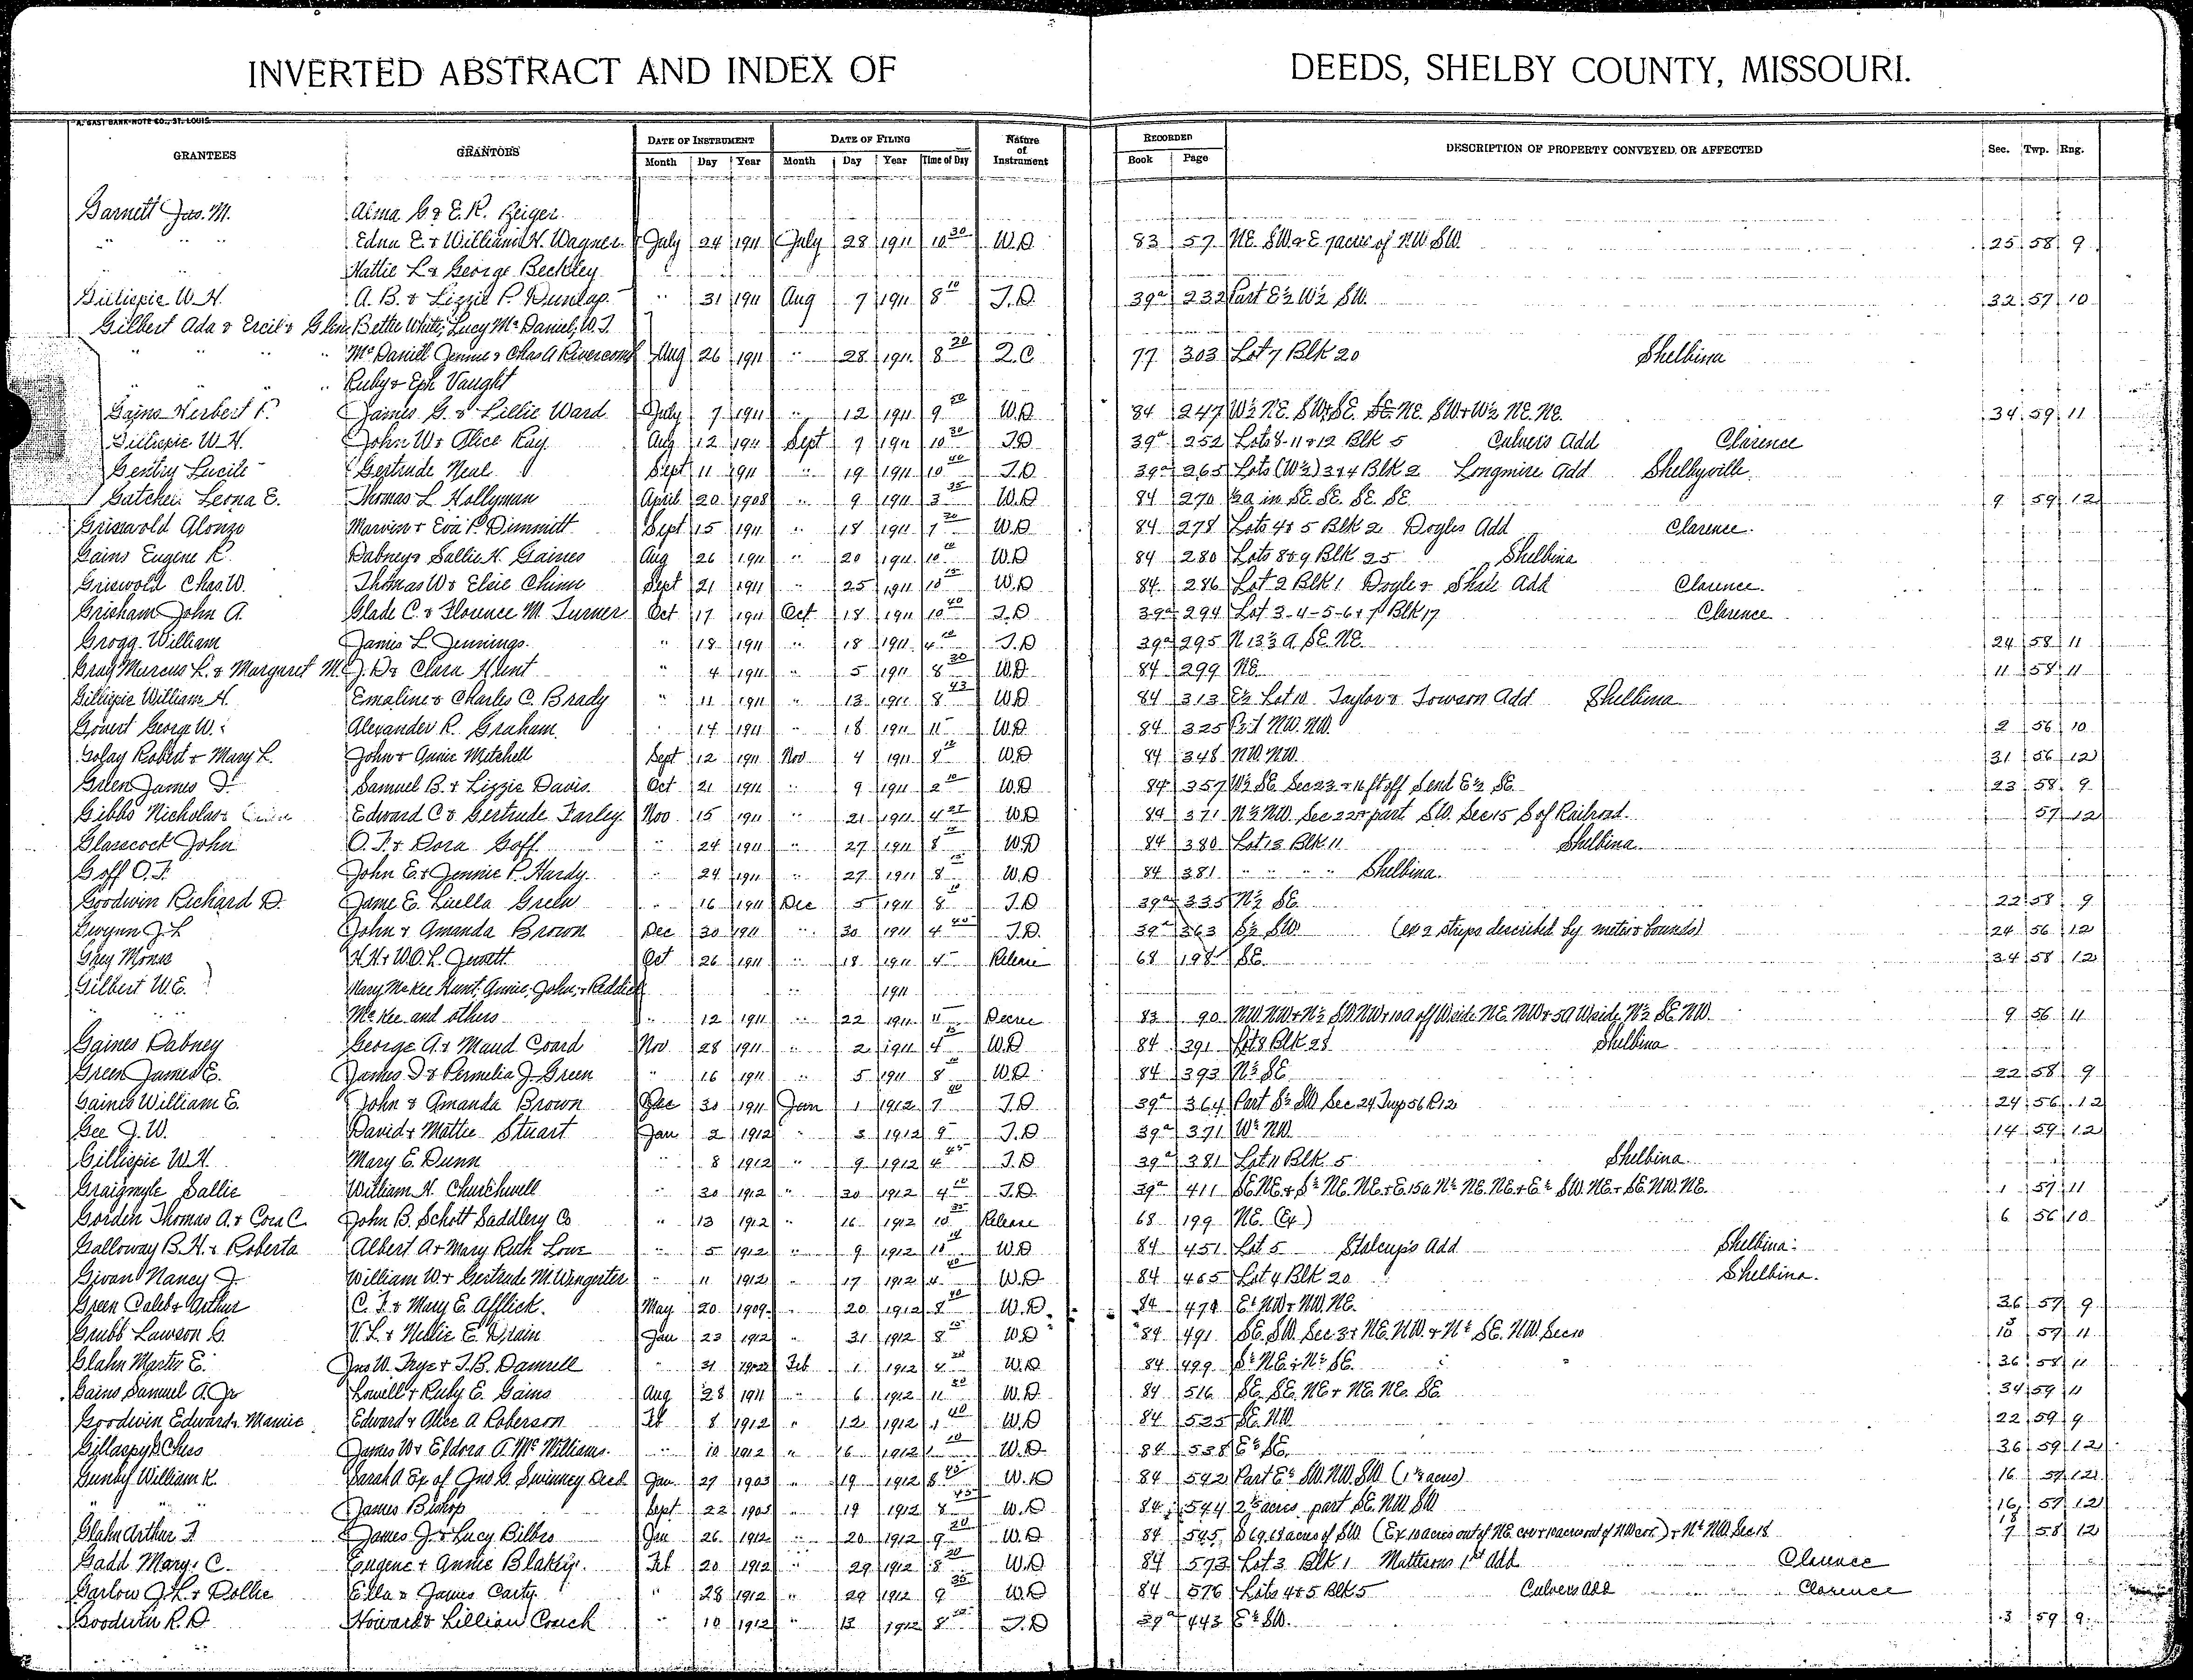 INVERTED ABSTRACT AND INDEX OF DEEDS, SHELBY COUNTY, MISSOURI.
A. GAST BANK NOTE CO., ST. LOUIS.
GRANTEES GRANTORS DATE OF INSTRUMENT DATE OF FILING Nature of Instrument RECORDED DESCRIPTION OF PROPERTY CONVEYED OR AFFECTED Sec. Twp. Rng.
Month Day Year Month Day Year Time of Day Book Page
Garnett Jas. M. Alma G & E. R. Zeiger
" " Edna E. & William H. Wagner July 24 1911 July 28 1911 10 30 W.D. 83 57 NE. SW & E 7 acres of NW SW. 25 58 9
Hattie L & George Beckley
Gillispie W. H. A. B. & Lizzie P. Dunlap " 31 1911 Aug 7 1911 8 10 T.D. 39a 232 Part E½ W½ SW. 32 57 10
Gilbert Ada & Ercil & Glen Bettie White, Lucy McDaniel, W. T.
" " " " McDaniel Jennie & Chas A Rivercomb Aug 26 1911 " 28 1911 8 20 Q.C 77 303 Lot 7 Blk 20 Shelbina
" " " Ruby & Eph Vaught
Gains Herbert P. James G. & Lillie Ward July 7 1911 " 12 1911 9 W.D. 84 247 W½ NE. SW & SE. SE NE. SW & W½ NE. NE. 34 59 11
Gillispie W. H. John W & Alice Ray Aug 12 1911 Sept 7 1911 10 30 T.D 39a 252 Lots 8-11 & 12 Blk 5 Culvers Add Clarence
Gentry Lucile Gertrude Neal Sept 11 1911 " 19 1911 10 40 T.D 39a 265 Lots (W½) 3 & 4 Blk 2 Longmire Add Shelbyville
Gatcher Leona E. Thomas L Hollyman April 20 1908 " 9 1911 3 35 W.D 84 270 ½a in SE. SE. SE. SE 9 59 12
Griswold Alonzo Marvin & Eva P. Dimmitt Sept 15 1911 " 18 1911 W.D 84 278 Lots 4 & 5 Blk 2 Doyles Add Clarence.
Gains Eugene R. Dabney & Sallie H. Gaines Aug 26 1911 " 20 1911 10 W.D 84 280 Lots 8 & 9 Blk 25 Shelbina
Griswold Chas. W. Thomas W & Elsie Chinn Sept 21 1911 " 25 1911 10 W.D 84 286 Lot 2 Blk 1 Doyle & Add Clarence.
Grisham John A. Glade C. & Florence M. Turner Oct 17 1911 Oct 18 1911 10 40 T.D 39a 294 Lot 3-4-5-6 & 7 Blk 17 Clarence
Grogg William James L Jennings " 18 1911 " 18 1911 4 T.D 39a 295 N 13⅓ a. SE. NE. 24 58 11
Gray Marcus L. & Margaret M. J. D & Clara Hunt " 4 1911 " 5 1911 8 30 W.D 84 299 NE. 11 58 11
Gillispie William H. Emaline & Charles C. Brady " 11 1911 " 13 1911 8 43 W.D 84 313 E½ Lot 10 Taylor & Towson Add Shelbina
George W. Alexander R. Graham " 14 1911 " 18 1911 11 W.D 84 325 NW. NW. 2 56 10
Golay Robert & Mary L. John & Annie Mitchell Sept 12 1911 Nov 4 1911 W.D 84 348 NW. NW. 31 56 12
Green James D. Samuel B. & Lizzie Davis. Oct 21 1911 " 9 1911 2 10 W.D 84 357 W½ SE Sec 23 & 16 ft off S end E½ SE. 23 58 9
Gibbs Nicholas Edward C & Gertrude Farley. Nov 15 1911 " 21 1911 4 27 W.D 84 371 N½ NW. Sec 22 & part SW. Sec 15 S of Railroad. 57 12
Glasscock John O. F. & Dora Goff " 24 1911 " 27 1911 8 W.D 84 380 Lot 13 Blk 11 Shelbina
Goff O. F. John E. & Jennie P. Hardy " 24 1911 " 27 1911 8 W.D 84 381 " " " " Shelbina.
Goodwin Richard D. Jame E. Luella Green " 16 1911 Dec 5 1911 8 T.D 39a 335 N½ SE. 22 58 9
Gwynn J. L. John & Amanda Brown Dec 30 1911 " 30 1911 4 40 T.D. 39a 363 S½ SW. (ex 2 strips described by metes & bounds) 24 56 12
Grey Moses H. H. & W. O. L. Jewett Oct 26 1911 " 18 1911 4 Release 68 198 SE. 34 58 12
Gilbert W. E. Mary McKee Hunt, Annie, John, & Reddick " 1911
" " McKee and others " 12 1911 " 22 1911 11 Decree 83 90 NW. NW & N½ SW NW & 10a off W side NE. NW & 5a W side N½ SE. NW. 9 56 11
Gaines Dabney George A. & Maud Coard Nov 28 1911 " 2 1911 4 W.D 84 391 Lot 8 Blk 28 Shelbina
Green James E. James D & Permelia J. Green " 16 1911 " 5 1911 8 W.D 84 393 N½ SE. 22 58 9
Gaines William E. John & Amanda Brown Dec 30 1911 Jan 1 1912 7 40 T.D 39a 364 Part S½ SW Sec 24 Twp 56 R 12 24 56 12
Gee J. W. David & Mattie Stuart Jan 2 1912 " 3 1912 9 T.D 39a 371 W½ NW. 14 59 12
Gillispie W. H. Mary E. Dunn " 8 1912 " 9 1912 4 45 T.D 39a 381 Lot 11 Blk 5 Shelbina.
Graigmyle Sallie William H. Churchwell " 30 1912 " 30 1912 4 10 T.D. 39a 411 SE NE. & S½ NE. NE. & E. 15a N½ NE. NE. & E½ SW. NE. & SE. NW. NE. 1 57 11
Gorden Thomas A. & Cora C. John B. Schott Saddlery Co " 13 1912 " 16 1912 10 35 Release 68 199 NE. (Ex) 6 56 10
Galloway B. H. & Roberta Albert A & Mary Ruth Lowe " 5 1912 " 9 1912 10 W.D 84 451 Lot 5 Stalcup's Add Shelbina.
Givan Nancy J. William W. & Gertrude M. Wingerter " 11 1912 " 17 1912 4 40 W.D. 84 465 Lot 4 Blk 20 Shelbina.
Green Caleb & Arthur C. F. & Mary E. Afflick. May 20 1909 " 20 1912 8 40 W.D. 84 474 E½ NW & NW. NE. 36 57 9
Grubb Lawson G. V. L. & Nellie E. Drain Jan 23 1912 " 31 1912 8 15 W.D 84 491 SE. SW. Sec 3 & NE. NW. & N½ SE. NW. Sec 10 3 10 57 11
Glahn Martin E. Jno W. Frye & T. B. Damrell " 31 1912 Feb 1 1912 4 W.D 84 499 S½ NE & N½ SE. 36 58 11
Gains Samuel A. Jr Lowell & Ruby E. Gains Aug 28 1911 " 6 1912 11 W.D. 84 516 SE. SE. NE & NE. NE. SE. 34 59 11
Goodwin Edward & Mamie Edward & Alice A Roberson Feb 8 1912 " 12 1912 1 40 W.D 84 525 SE. NW. 22 59 9
Gillaspy Chas James W & Eldora A. McWilliams. " 10 1912 " 16 1912 1 W.D. 84 538 E½ SE. 36 59 12
Gunby William K. Sarah A Ex of Jno. G. Swinney Decd Jan 27 1903 " 19 1912 8 45 W.D 84 542 Part E½ SW. NW. SW (1½ acres) 16 57 12
" " " James Bishop Sept 22 1905 " 19 1912 8 45 W.D 84 544 2½ acres part SE. NW SW 16 57 12
Glahn Arthur F. James J. & Lucy Bilbro Jan 26 1912 " 20 1912 9 20 W.D. 84 545 S 69.68 acres of SW (Ex 10 acres out of NE cor & 10 acres out of NW cor.) & N½ NW. Sec 18 18 7 58 12
Gadd Mary C. Eugene & Annie Blakey. Feb 20 1912 " 29 1912 8 30 W.D 84 573 Lot 3 Blk 1 Mattersons 1st Add Clarence
Garlow J. H. & Dollie Ella & James Carty " 28 1912 " 29 1912 9 35 W.D 84 576 Lots 4 & 5 Blk 5 Culvers Add Clarence
Goodwin R. D Howard & Lillian Couch " 10 1912 " 13 1912 8 T.D 39a 443 E½ SW. 3 59 9